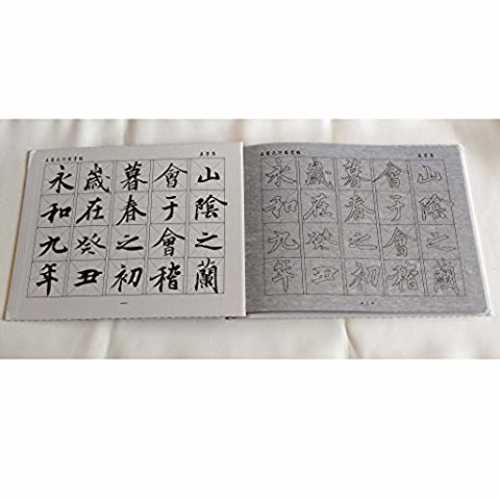 永和九年
歲在癸丑
暮春之初
會于會稽
山陰之蘭
永和九年
歲在癸丑
暮春之初
會于會稽
山陰之蘭